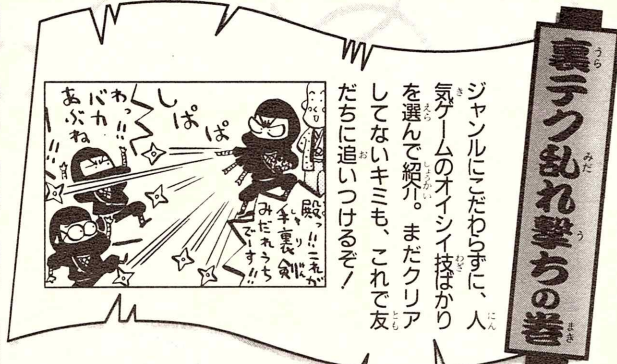 裏テク乱れ撃ちの巻
ジャンルにこだわらずに、人
気ゲームのオイシイ技ばかり
を選んで紹介。まだクリア
してないキミも、これで友
だちに追いつけるぞ!
殿っ!!これが
手裏剣
みだれうち
でーす!!
しぱぱ
わっ!!
バカ
あぶね!!